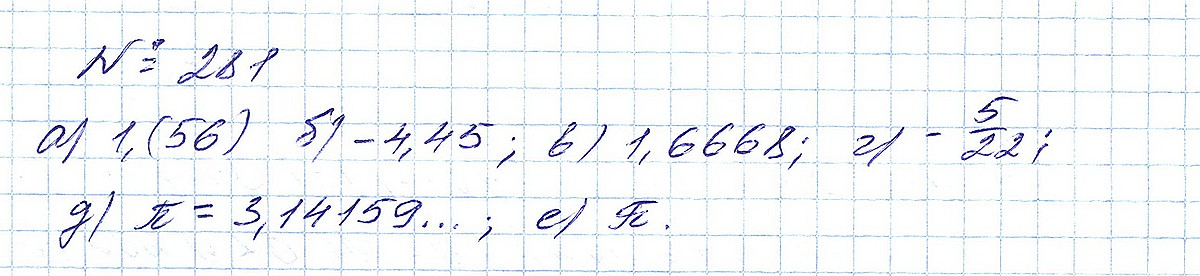 № 281
а) 1,(56) б) -4,45; в) 1,6668; г) - 5/22;
д) π = 3,14159...; е) π.